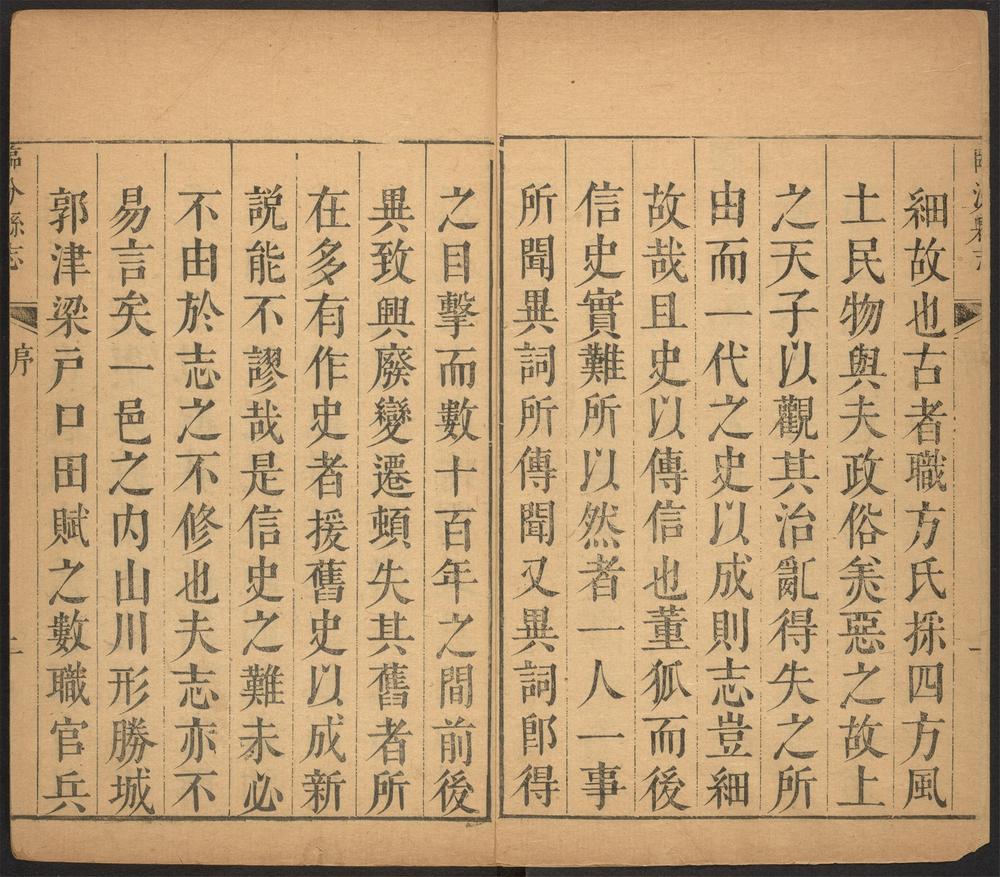 細故也古者職方氏採四方風
土民物與夫政俗羙惡之故上
之天子以觀其治亂得失之所
由而一代之史以成則志豈細
故哉且史以傳信也董狐而後
信史實難所以然者一人一事
所聞異詞所傳聞又異詞卽得
之目擊而數十百年之間前後
異致興廢變遷頓失其舊者所
在多有作史者援舊史以成新
説能不謬哉是信史之難未必
不由於志之不修也夫志亦不
易言矣一邑之内山川形勝城
郭津梁戸口田賦之數職官兵
臨汾縣志
序
二